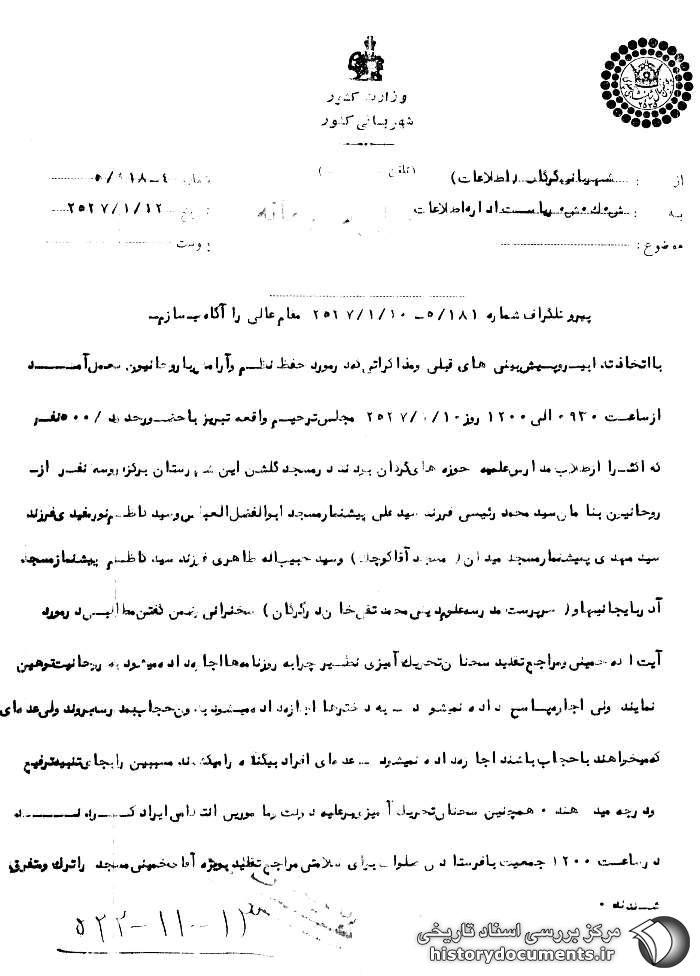 وزارت کشور
شهربانی کشور
از : شهربانی گرگان (اطلاعات) (تلفن ) شماره ۴-۵/۹۱۸
به : ریاست اداره اطلاعات تاریخ ۲۵۳۷/۱/۱۲
موضوع : پیوست
پیرو تلگراف شماره ۵/۱۸۱- ۲۵۳۷/۱/۱۰ مقام عالی را آگاه میسازم-
بااتخاذتدابیروپیش‌بینی های قبلی ومذاکراتی که درمورد حفظ نظم وآرامش باروحانیون بعمل آمد
ازساعت ۰۹۳۰ الی ۱۲۰۰ روز ۲۵۳۷/۱/۱۰ مجلس ترحیم واقعه تبریز باحضورحدود /۵۰۰نفر
که اکثرا ازطلاب مدارس علمیه حوزه های گرگان بودند درمسجد گلشن این شهرستان برگزاروسه نفر از-
روحانیون بنامان سید محمد رئیسی فرزند سیدعلی پیشنمازمسجد ابوالفضل العباس وسید کاظم نورمفیدی فرزند
سید مهدی پیشنمازمسجد میدان ( مسجد آقاکوچک ) وسید حبیب‌اله طاهری فرزند سید کاظم پیشنمازمسجد
آذربایجانیهاو( سرپرست مدرسه علوم دینی محمد تقی خان درگرگان ) سخنرانی وضمن گفتن مطالبی درمورد
آیت اله خمینی ومراجع تقلید سخنان تحریک آمیزی نظیر چرابه روزنامه‌هااجازه داده میشود به روحانیت توهین
نمایند ولی اجازه پاسخ داده نمیشود - به دخترها اجازه داده میشود بدون حجاب بمدرسه بروند ولی عده‌ای
که میخواهند باحجاب باشند اجازه داده نمیشود - عده‌ای افراد بیگناه رامیکشند مسببین رابجای تنبیه ترفیع
ودرجه میدهند ۰ همچنین سخنان تحریک آمیزی برعلیه دولت ومامورین انتظامی ایراد کردند
درساعت ۱۲۰۰ جمعیت بافرستادن صلوات برای سلامتی مراجع تقلید بویژه آقای خمینی مسجد راترک ومتفرق
شدند ۰
۵۲۲-۱۱-۱۳
مرکز بررسی اسناد تاریخی
historydocuments.ir